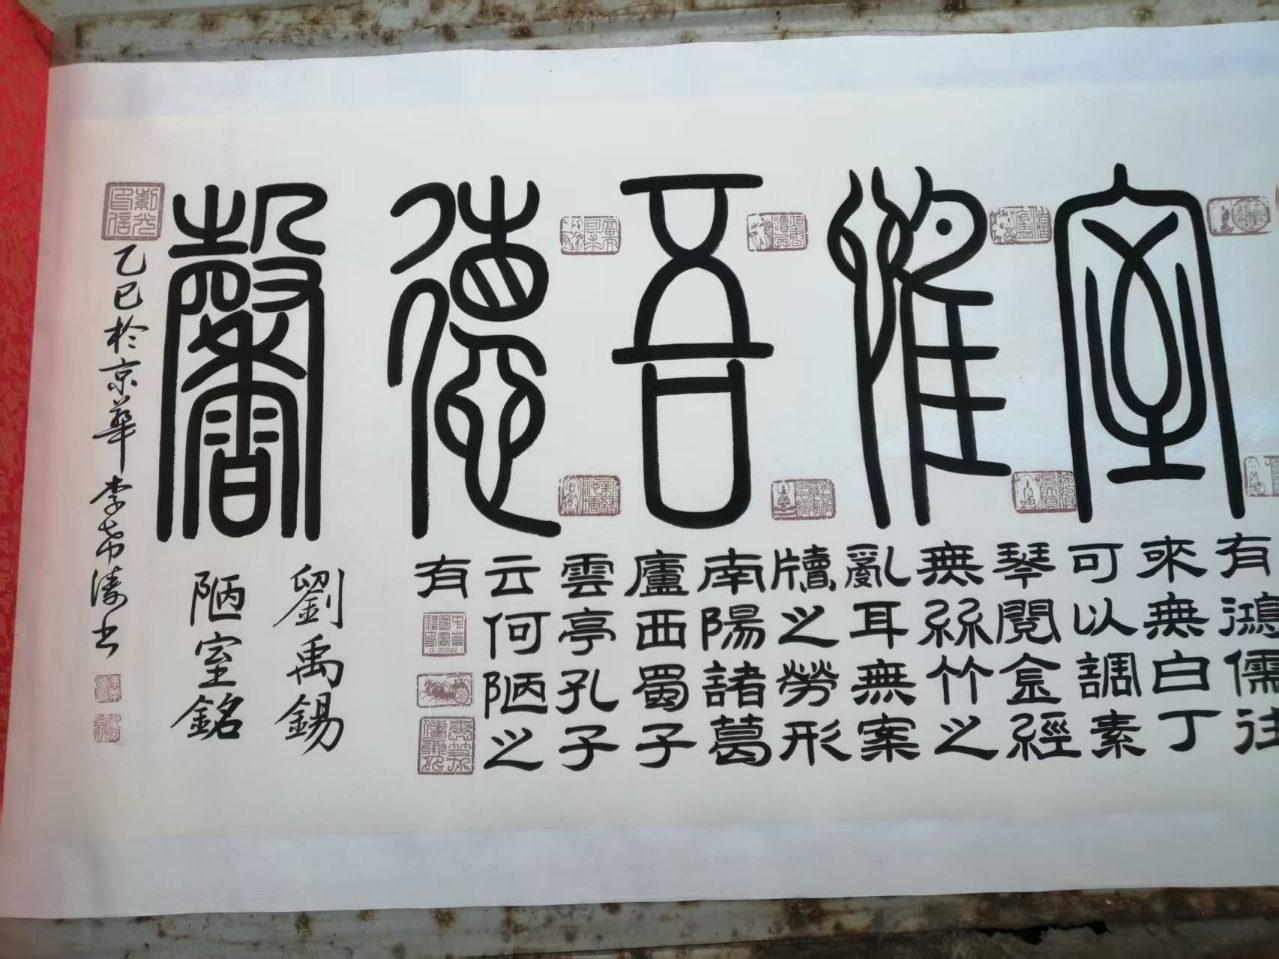 室惟吾德馨
有鴻儒往
來無白丁
可以調素
琴閱金經
無絲竹之
亂耳無案
牘之勞形
南陽諸葛
廬西蜀子
雲亭孔子
云何陋之
有
劉禹錫
陋室銘
乙巳於京華 李希涛书